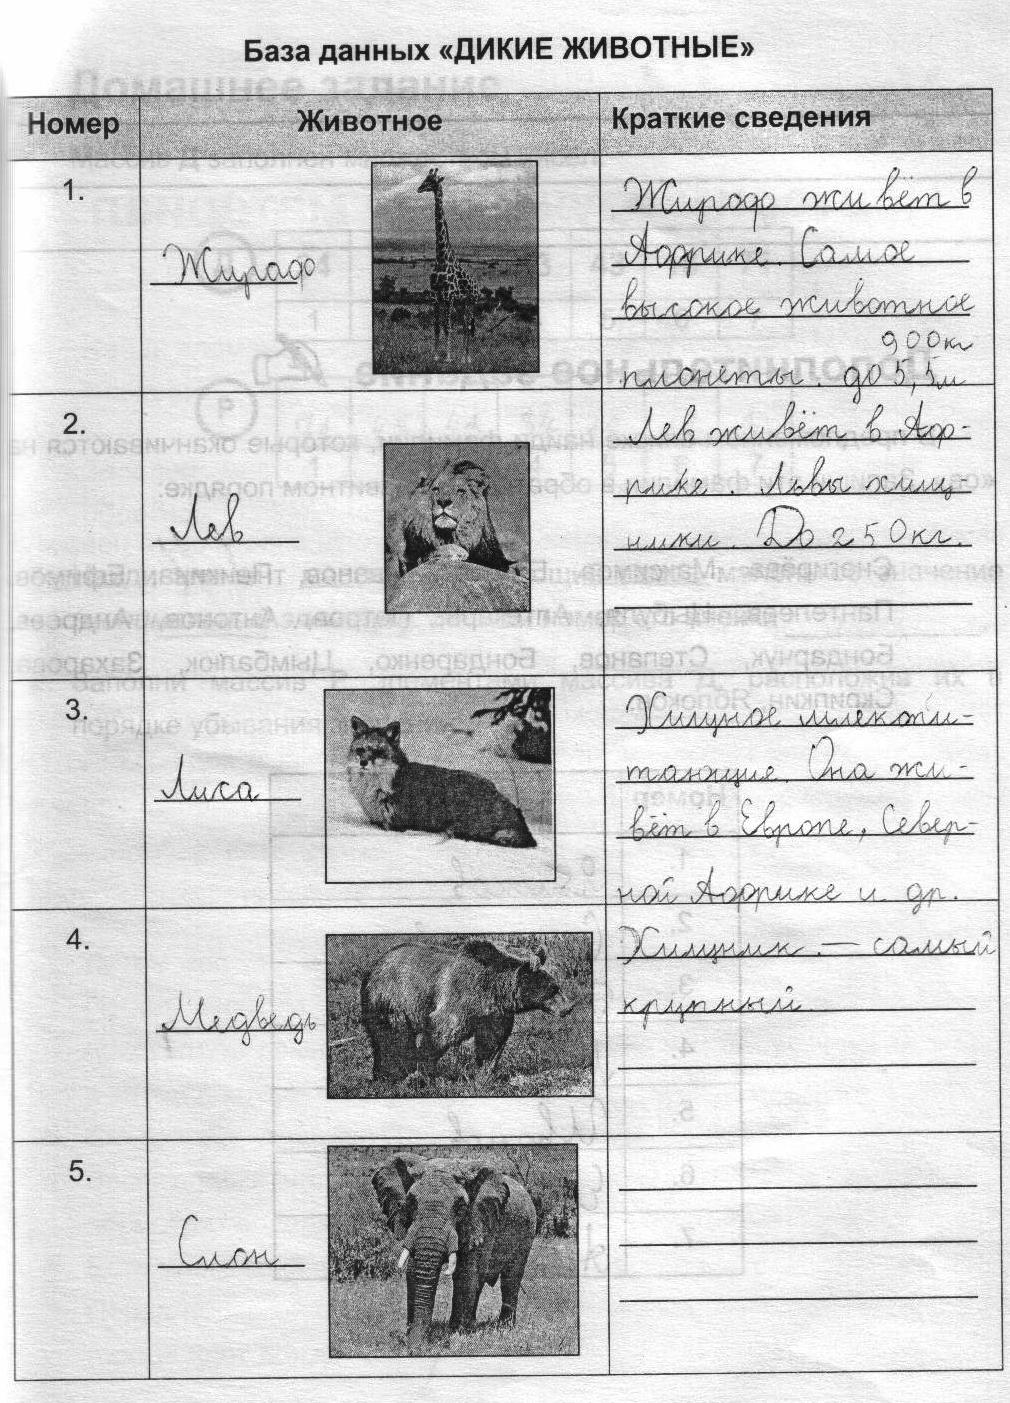 База данных «ДИКИЕ ЖИВОТНЫЕ»
Номер Животное Краткие сведения
1.
Жираф
Жираф живёт в
Африке. Самое
высокое животное
900кг
планеты. до 5,5м
2.
Лев
Лев живёт в Аф-
рике. Львы хищ-
ники. До 250кг.
3.
Лиса
Хищное млекопи-
тающие. Она жи-
вёт в Европе, Север-
ной Африке и др.
4.
Медведь
Хищник - самый
крупный.
5.
Слон